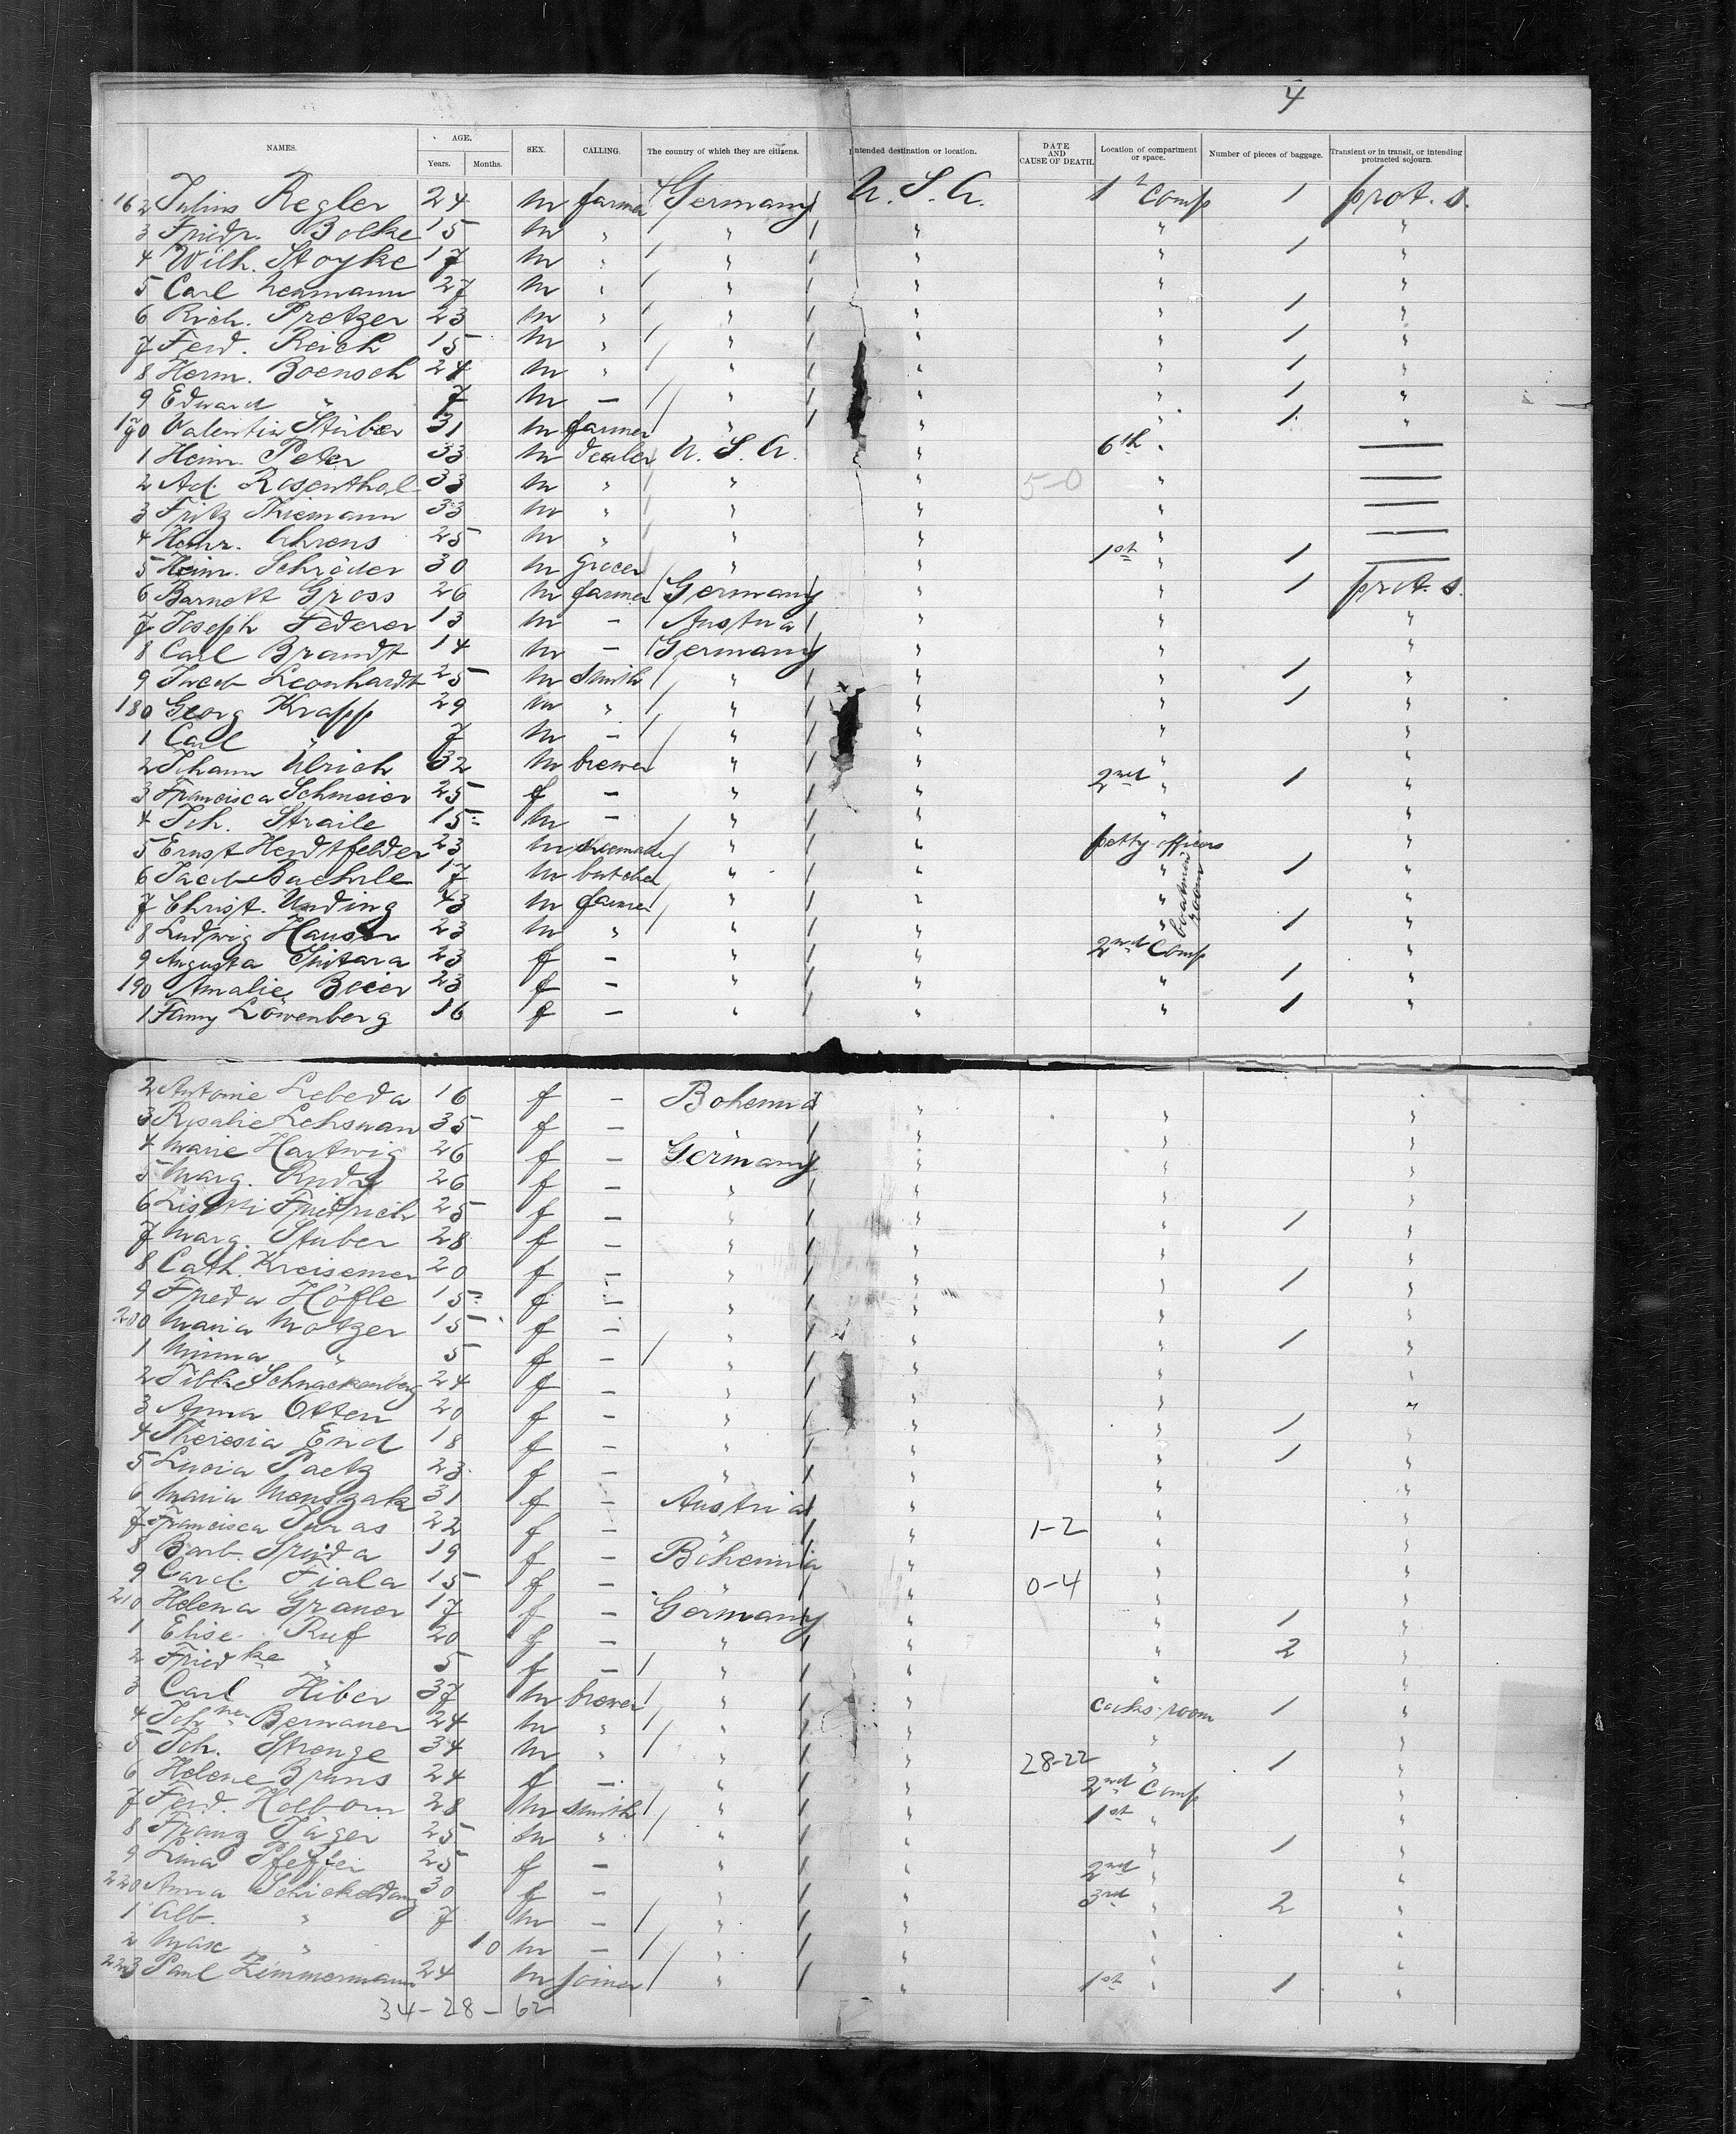 4
NAMES. AGE. Years. Months. SEX. CALLING. The country of which they are citizens. Intended destination or location. DATE AND CAUSE OF DEATH. Location of compartment or space. Number of pieces of baggage. Transient or in transit, or intending protracted sojourn.
162 Julius Regler 24 m farmer Germany U.S.A. 1st Comp 1 prot. s.
3 Friedr. Bolke 15 m " " " " "
4 Wilh. Stoyke 17 m " " " " 1 "
5 Carl 27 m " " " " "
6 Rich. Pretzer 23 m " " " " 1 "
7 Ferd. Reich 15 m " " " " 1 "
8 Herm. Boensch 24 m " " " " 1 "
9 Edward " 7 m — " " " 1 "
170 Valentin Stüber 31 m farmer " " " 1 "
1 Heinr. Peter 33 m dealer U.S.A. " 6th " —
2 Ad. Rosenthal 33 m " " " 5-0 " —
3 Fritz Thiemann 33 m " " " " —
4 Heinr. Ahrens 25 m " " " " —
5 Heinr. Schröder 30 m grocer " " 1st " 1 —
6 Barnett Gross 26 m farmer Germany " " 1 prot. s.
7 Joseph Federer 13 m — Austria " " "
8 Carl Brandt 14 m — Germany " " "
9 Jacob Leonhardt 25 m smith " " " 1 "
180 Georg Krapp 29 m " " " " 1 "
1 Carl " 7 m — " " " "
2 Johann Ulrich 32 m brewer " " " "
3 Francisca Schmeier 25 f — " " 2nd " 1 "
4 Joh. Straile 15 m — " " " "
5 Ernst Herdtfelder 23 m shoemaker " " petty officers "
6 Jacob Baehrle 17 m butcher " " " 1 "
7 Christ. Unding 43 m farmer " " " "
8 Ludwig Hauser 23 m " " " " 1 "
boatmen room
9 Augusta 23 f — " " 2nd Comp "
190 Amalie Beier 23 f — " " " 1 "
1 Fanny Löwenberg 16 f — " " " 1 "
2 Antonie Lebeda 16 f — Bohemia "
3 Rosalie 35 f — " " "
4 Marie Hartwig 26 f — Germany " " "
5 Marg. 26 f — " " " "
6 Friedrich 25 f — " " " "
7 Marg. Stuber 28 f — " " " 1 "
8 Cath. Kreisemer 20 f — " " " "
9 Frieda Höfle 15 f — " " " 1 "
200 Maria Motzer 15 f — " " " "
1 Minna " 5 f — " " " 1 "
2 Schnackenberg 24 f — " " " "
3 Anna Otten 20 f — " " " "
4 Theresia End 18 f — " " " 1 "
5 Lucia Paetz 23 f — " " " 1 "
6 Maria 31 f — Austria " " "
7 Francisca Juras 22 f — " " 1-2 " "
8 Barb. 19 f — Bohemia " " "
9 Carol. Fiala 15 f — " " 0-4 " "
210 Helena Graner 17 f — Germany " " "
1 Elise Ruf 20 f — " " " 1 "
2 Friedke " 5 f — " " " 2 "
3 Carl Hiber 37 m brewer " " "
4 Joh Bernauer 24 m " " " cooks room 1 "
5 Joh. Strenge 34 m " " " " "
6 Helene Bruns 24 f — " " 28-22 1 "
7 Ferd. Holborn 28 m smith " " 2nd Comp "
8 Franz Jäger 25 m " " " 1st " "
9 Lina Pfeffer 25 f — " " 1 "
220 Anna Schickedanz 30 f — " " 2nd " "
1 Alb. " 7 m — " " 3rd " 2 "
2 Max " 10 m — " " " "
223 Paul Zimmermann 24 m joiner " " 1st " 1 "
34-28-62